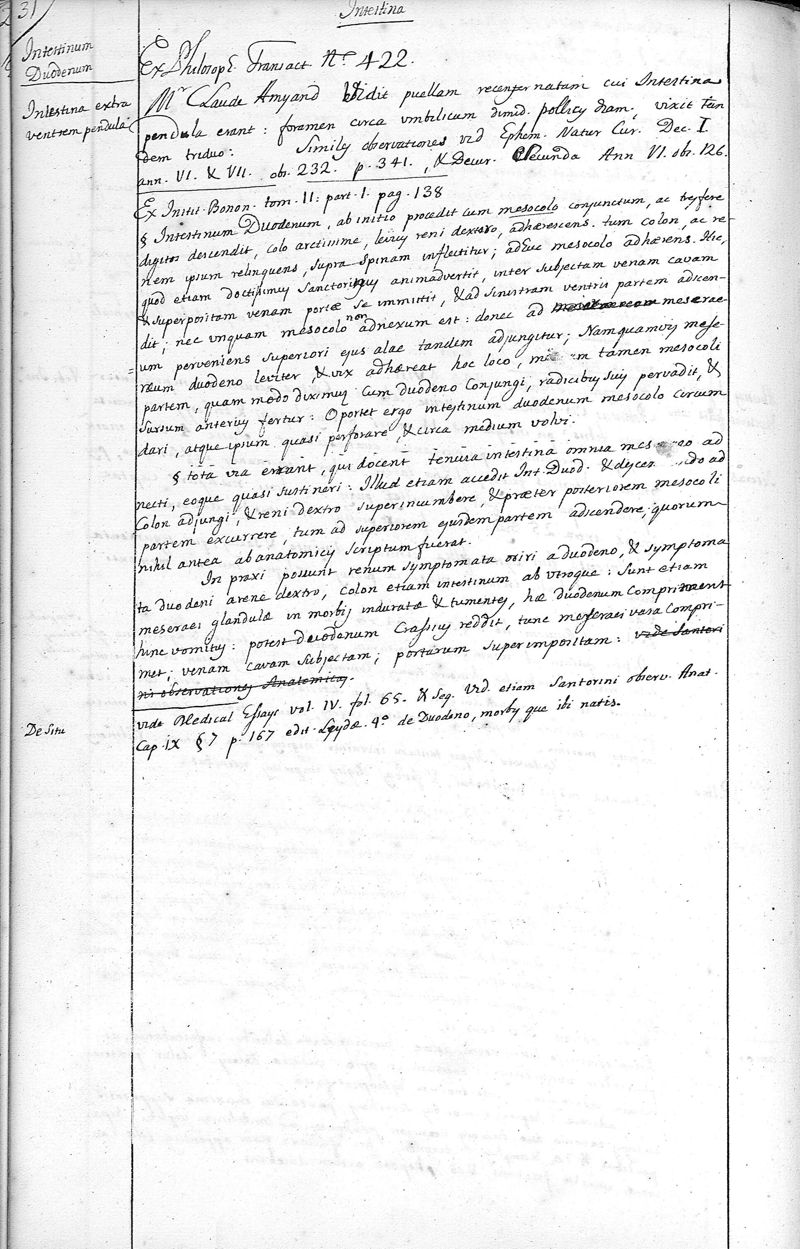 231
Intestina
Intestinum
Duodenum
Intestina extra
ventrem pendula
Ex Philosoph: Transact No. 422.
Mr Claude Amyand vidit puellam recenter natam cui Intestina
pendula erant: foramen circa umbilicum dimid. pollicis diam; vixit tan
dem triduo: Similes observationes vid Ephem. Natur Cur. Dec. I
ann. VI. & VII. obs. 232. p. 341., & Decur. Secunda Ann VI. obs. 126.
Ex Instit. Bonon. tom. II: part. 1. pag. 138
§ Intestinum Duodenum, ab initio procedit cum mesocolo conjunctum, ac tres fere
digitos descendit, colo arctissime, leviusque reni dextro, adhærescens. tum colon, ac re-
nem ipsum relinquens, supra spinam inflectitur; adhuc mesocolo adhærens. Hic,
quod etiam doctissimus Sanctorinus animadvertit, inter subjectam venam cavam
& superpositam venam portæ se immittit, & ad sinistram ventris partem adscen-
dit; nec unquam mesocolo non adnexum est: donec ad meseræ-
um perveniens superiori ejus alae tandem adjungitur; Namquamvis mese-
ræum duodeno leviter, & vix adhæreat hoc loco, tamen mesocoli
partem, quam modo diximus cum duodeno Conjungi, radicibus suis pervadit, &
sursum anterius fertur: Oportet ergo intestinum duodenum mesocolo circum
dari, atque ipsum quasi perforare, & circa medium volvi.
§ tota via errant, qui docent tenuia intestina omnia ad
necti, eoque quasi sustineri: Illud etiam accedit Int. Duod. & ad
Colon adjungi, & reni dextro superincumbere, & præter posteriorem mesocoli
partem excurrere, tum ad superiorem ejusdem partem adscendere; quorum
nihil antea ab anatomicis scriptum fuerat.
In praxi possunt renum symptomata oriri a duodeno, & symptoma
ta duodeni a rene dextro, Colon etiam intestinum ab utroque: Sunt etiam
meseraei glandulæ in morbis induratæ & tumentes, hæ duodenum Comprimens
hinc vomitus: potest duodenum Crassius reddit, tunc meseraei vasa Compri-
met; venam cavam subjectam; portarum superimpositam: vide Santori
ni observationes Anatomicas.
De Situ
vide Medical Essays vol. IV. fol. 65. & Seq. Vid. etiam Santorini observ. Anat.
Cap. IX § 7 p. 167 edit. Leydæ. 4o de Duodeno, morbisque ibi natis.